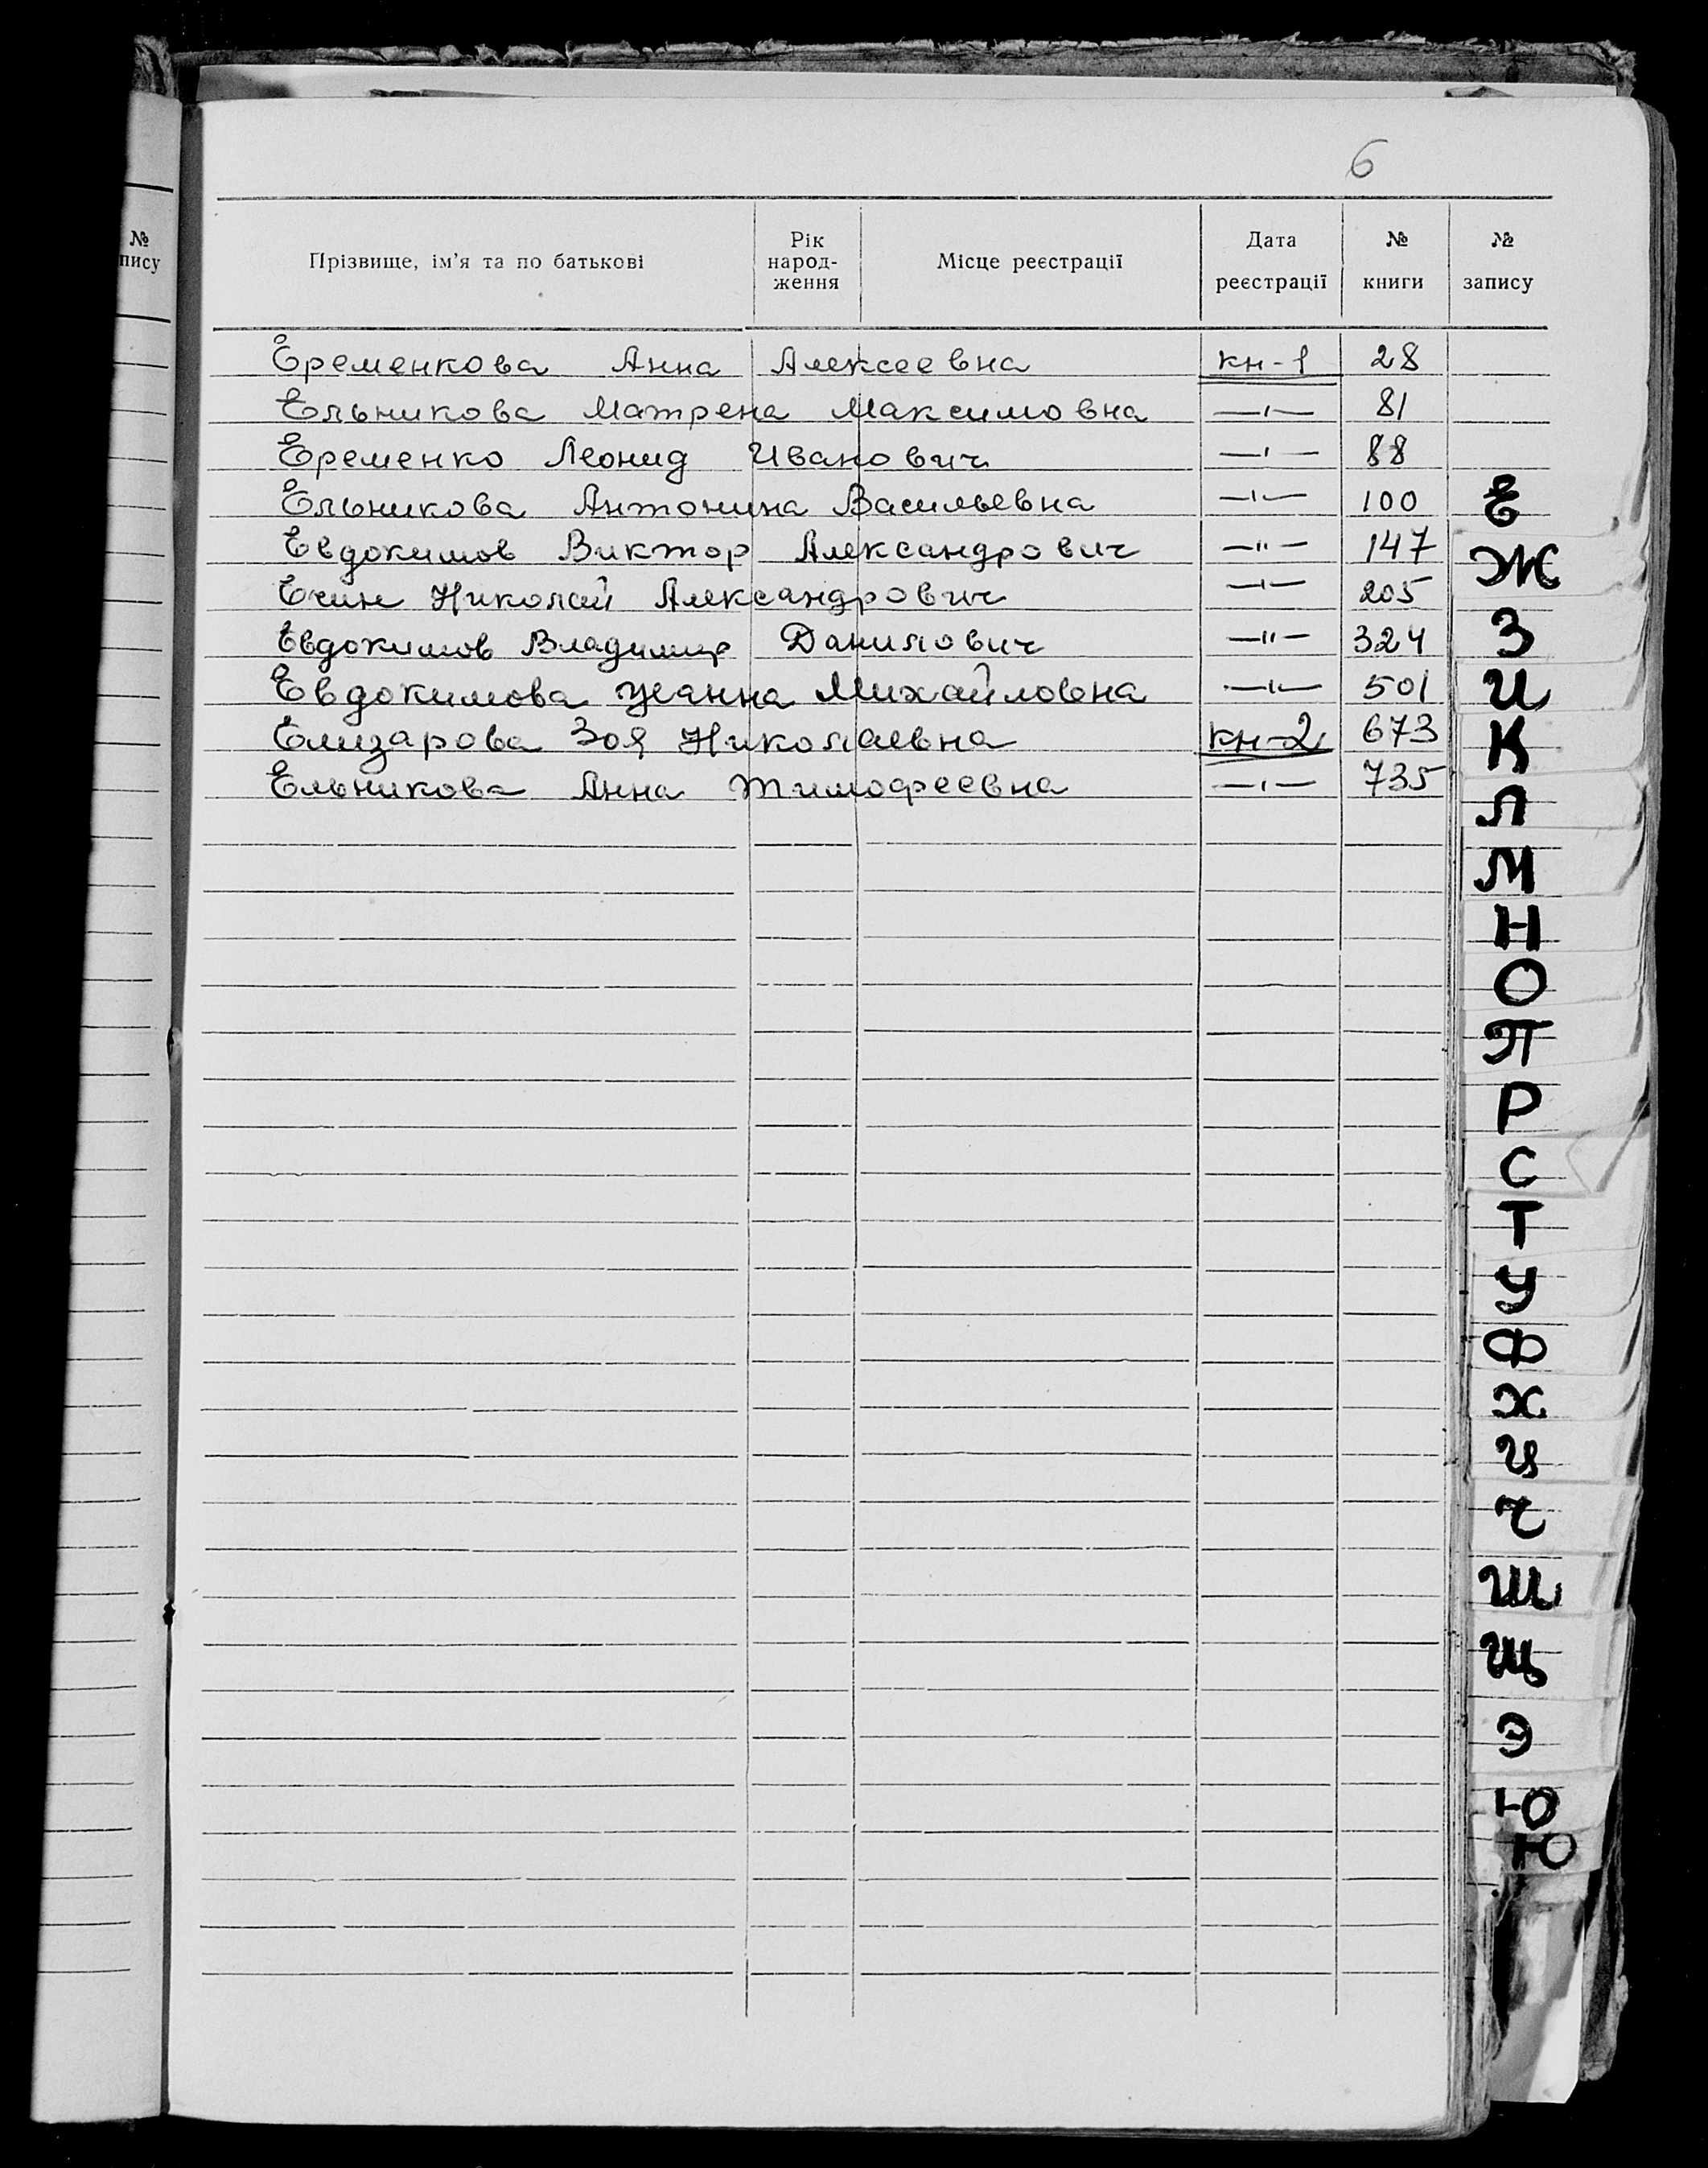 6
№
пису
Прізвище, ім'я та по батькові
Рік
народ-
ження
Місце реєстрації
Дата
реєстрації
№
книги
№
запису
Еременкова Анна Алексеевна кн-1 28
Ельникова Матрена Максимовна —"— 81
Еременко Леонид Иванович —"— 88
Ельникова Антонина Васильевна —"— 100
Евдокимов Виктор Александрович —"— 147
Николай Александрович —"— 205
Евдокимов Владимир Данилович —"— 324
Евдокимова Жанна Михайловна —"— 501
Елизарова Зоя Николаевна кн-2 673
Ельникова Анна Тимофеевна —"— 735
Е
Ж
З
И
К
Л
М
Н
О
П
Р
С
Т
У
Ф
Х
Ц
Ч
Ш
Щ
Э
Ю
Ю